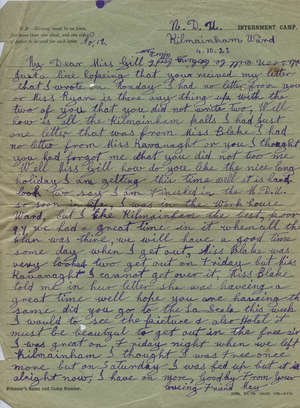 N.D.U. INTERNMENT CAMP.
Kilmainham Ward
4.10.23
My Dear Miss Gill
Just a line hoping that you received my letter
that I wrote on Monday I had no letter from you
or Miss Ryan is there any thing wrong with the
two of you that you did not write two, Well
how is all the Kilmainham falls I had just
one letter that was from Miss Blake I had
no letter from Miss Kavanaght or you I thought
you had forgot me that you did not two me
Well Miss Gill how do you like the nice long
holiday I am getting
I am finished in the N.D.U.
so soon in life. I was in the work house
Ward, but I the Kilmainham the best, poor
we had a great time in it when all the
was twine, we will have a good time
some day when I get out, Miss Blake was
very good two get out on Friday but Miss
Kavanaght I cannot get over it, Miss Blake
told me in hear letter she was haveing a
great time well hope you are haveing the
same did you go to the La Scala this week
I would to see the pictures also Hotel it
must be beautyful to get out in the free air
I was great on, Friday night when we left
Kilmainham I thought I was free once
more but on Saturday I was fed up but it is
alright now, I have no more, Goodby From your
loveing Friend
Prisoner's Name and Camp Number.